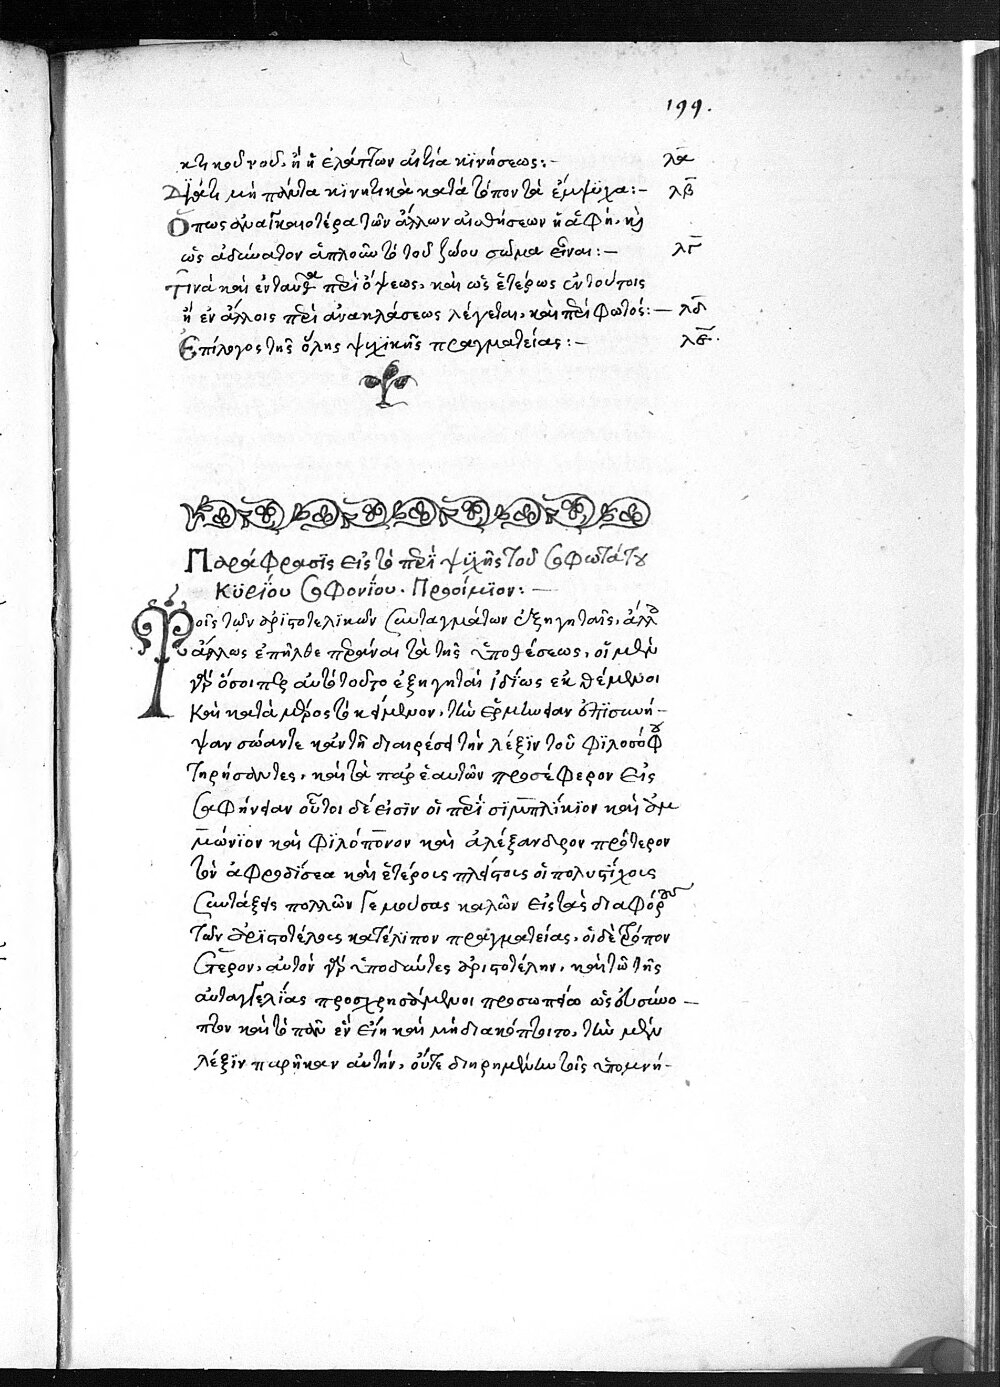 199.
κτικοῦ νοῦ, ἢ ἡ ἐλάττων αἰτία κινήσεως:– λα
Διατί μὴ πάντα κινητικὰ κατὰ τόπον τὰ ἔμψυχα:– λβ
Ὅπως ἀναγκαιοτέρα τῶν ἄλλων αἰσθήσεων ἡ ἁφή, καὶ
ὡς ἀδύνατον ἁπλοῦν τὸ τοῦ ζώου σῶμα εἶναι:– λγ
Τινὰ καὶ ἐνταῦθα περὶ ὄψεως, καὶ ὡς ἑτέρως ἐν τούτοις
ἢ ἐν ἄλλοις περὶ ἀνακλάσεως λέγεται, καὶ περὶ φωτός:– λδ
Ἐπίλογος τῆς ὅλης ψυχικῆς πραγματείας:– λε.
Παράφρασις εἰς τὸ περὶ ψυχῆς τοῦ σοφωτάτου
κυρίου σοφονίου. Προοίμιον:–
Τοῖς τῶν ἀριστοτελικῶν συνταγμάτων ἐξηγηταῖς, ἄλλο
ἄλλως ἐπῆλθε περᾶναι τὰ τῆς ὑποθέσεως, οἱ μὲν
γὰρ ὅσοιπερ αὐτὸ τοῦτο ἐξηγηταὶ ἰδίως ἐκθέμενοι
καὶ κατὰ μέρος τὸ κείμενον, τὴν ἑρμηνείαν ἐπισυνῆ-
ψαν σώαν τε κἀν τῇ διαιρέσει τὴν λέξιν τοῦ φιλοσόφου
τηρήσαντες, καὶ τὰ παρ' ἑαυτῶν προσέφερον εἰς
σαφήνειαν οὗτοι δέ εἰσιν οἱ περὶ σιμπλίκιον καὶ ἀμ
μώνιον καὶ φιλόπονον καὶ ἀλέξανδρον πρότερον
τὸν ἀφροδισέα καὶ ἑτέροις πλείστοις οἱ πολυστίχοις
συντάξεις πολλῶν γεμούσας καλῶν εἰς τὰς διαφόρους
τῶν ἀριστοτέλους κατέλιπον πραγματείας, οἱ δὲ τρόπον
ἕτερον, αὐτὸν γὰρ ὑποδύντες ἀριστοτέλην, καὶ τῷ τῆς
αὐταγγελίας προσχρησάμενοι προσωπείῳ ὡς ἂν σύνο–
πτον καὶ τὸ πᾶν ἓν εἴη καὶ μὴ διακόπτοιτο, τὴν μὲν
λέξιν παρῆκαν αὐτήν, οὔτε διῃρημένην τοῖς ὑπομνή-